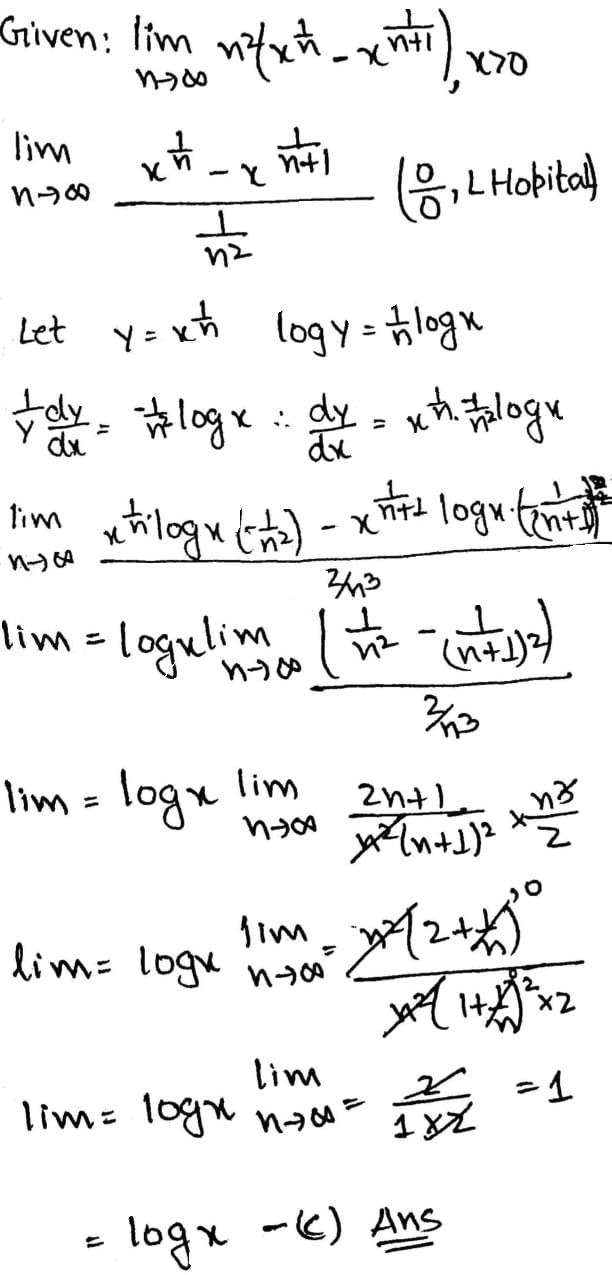 Given: lim n→∞ n²(x^(1/n) - x^(1/(n+1))), x>0
lim n→∞ (x^(1/n) - x^(1/(n+1))) / (1/n²) (0/0, L Hopital)
Let y = x^(1/n) log y = 1/n log x
1/y dy/dx = -1/n² log x ∴ dy/dx = x^(1/n) · -1/n² log x
lim n→∞ (x^(1/n) · log x (-1/n²) - x^(1/(n+1)) log x · (-1/(n+1)²)) / (2/n³)
lim = log x lim n→∞ (1/n² - 1/(n+1)²) / (2/n³)
lim = log x lim n→∞ (2n+1) / (n²(n+1)²) × n³/2
lim = log x lim n→∞ = n²(2+1/n)^→0 / (n²(1+1/n)² × 2)
lim = log x lim n→∞ = 2/(1×2) = 1
= log x - (c) Ans